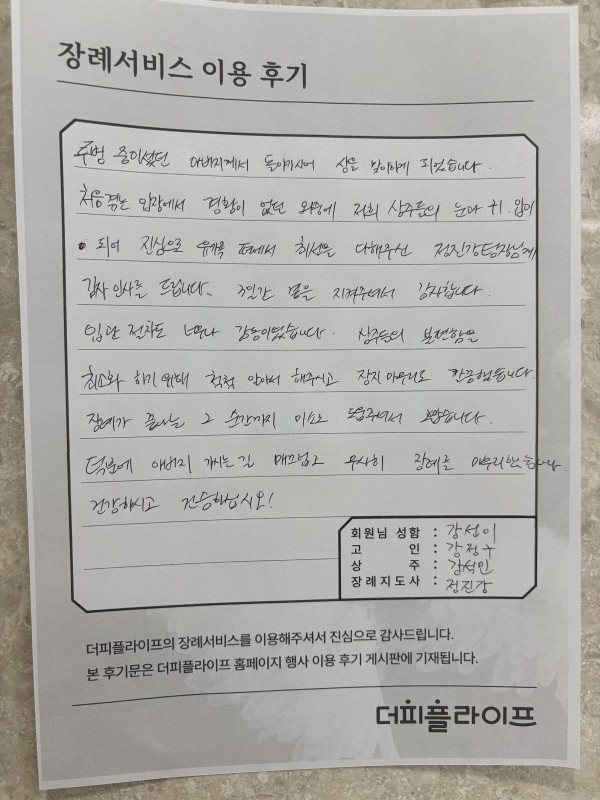 장례서비스 이용 후기
투병 중이셨던 아버지께서 돌아가시어 상을 맞이하게 되었습니다.
처음 겪는 입장에서 경황이 없던 와중에 저희 상주들의 눈과 귀, 입이
되어 진심으로 유가족 편에서 최선을 다해주신 정진강팀장님께
감사 인사를 드립니다. 3일간 곁을 지켜주셔서 감사합니다.
입관 절차도 너무나 감동이었습니다. 상주들의 불편함을
최소화 하기 위해 척척 알아서 해주시고 장지 마무리도 깔끔했습니다.
장례가 끝나는 그 순간까지 미소로 도움주셔서 고맙습니다.
덕분에 아버지 가시는 길 매끄럽고 무사히 장례를 마무리했습니다.
건강하시고 건승하십시오!
회원님 성함 : 강선이
고 인 : 강정수
상 주 : 강석민
장례지도사 : 정진강
더피플라이프의 장례서비스를 이용해주셔서 진심으로 감사드립니다.
본 후기문은 더피플라이프 홈페이지 행사 이용 후기 게시판에 기재됩니다.
더피플라이프